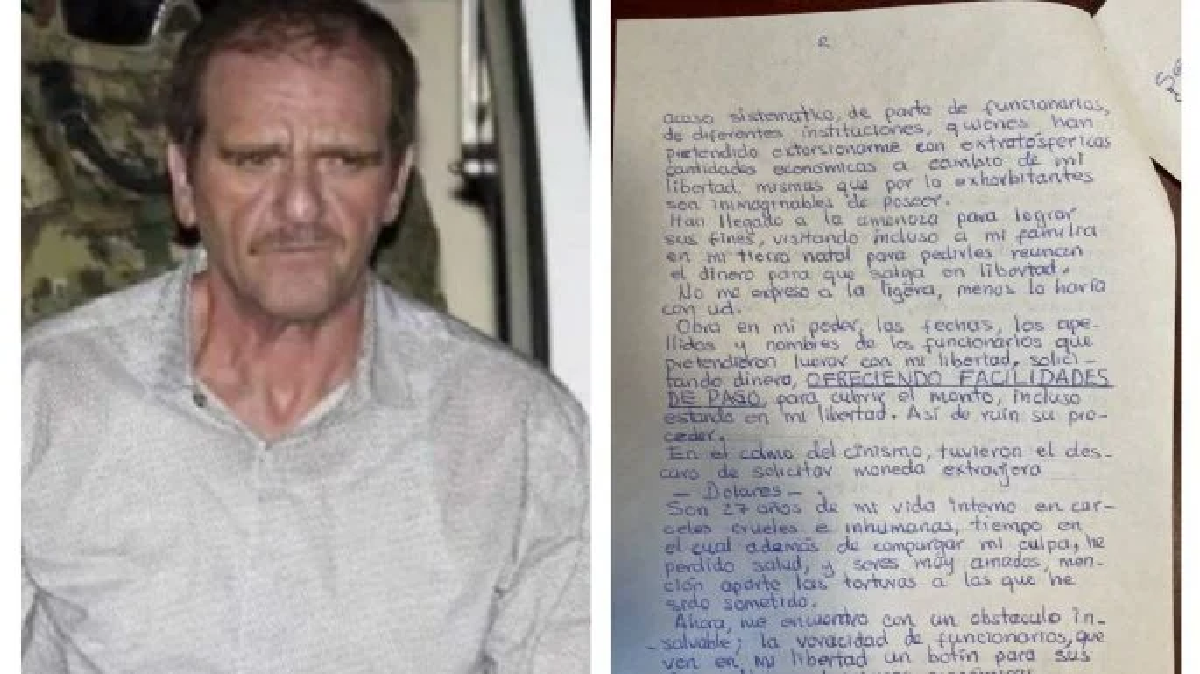 2
acoso sistematico, de parte de funcionarios,
de diferentes instituciones, quienes han
pretendido extorsionarme con extratosfericas
cantidades económicas a cambio de mi
libertad, mismas que por lo exhorbitantes
son inimaginables de poseer.
Han llegado a la amenaza para lograr
sus fines, visitando incluso a mi familia
en mi tierra natal para pedirles reunan
el dinero para que salga en libertad.
No me expreso a la ligera, menos lo haría
con ud.
Obra en mi poder, las fechas, los ape-
llidos y nombres de los funcionarios que
pretendieron lucrar con mi libertad, solici-
tando dinero, OFRECIENDO FACILIDADES
DE PAGO, para cubrir el monto, incluso
estando en mi libertad. Así de ruin su pro-
ceder.
En el colmo del cinismo, tuvieron el des-
caro de solicitar moneda extranjera
- Dolares - .
Son 27 años de mi vida interno en car-
celes crueles e inhumanas, tiempo en
el cual además de compurgar mi culpa, he
perdido salud, y seres muy amados, men-
ción aparte las torturas a las que he
sido sometido.
Ahora, me encuentro con un obstaculo in-
salvable; la voracidad de funcionarios, que
ven en mi libertad un botín para sus